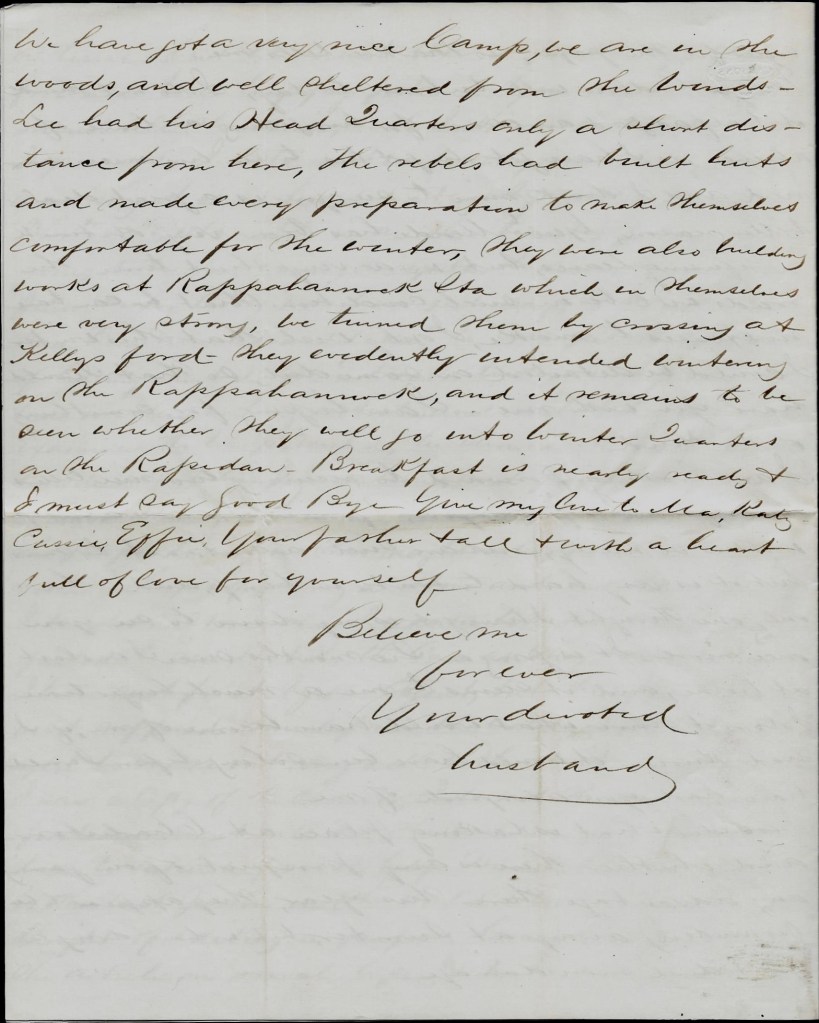 We have got a very nice Camp, we are in the
woods, and well sheltered from the winds –
Lee had his Head Quarters only a short dis-
tance from here, the rebels had built huts
and made every preparation to make themselves
comfortable for the winter, they were also building
works at Rappahannock Sta which in themselves
were very strong, we turned them by crossing at
Kellys ford – they evidently intended wintering
on the Rappahannock, and it remains to be
seen whether they will go into Winter Quarters
on the Rapidan – Breakfast is nearly ready &
I must say Good Bye Give my love to Ma, Katy
Cassie, Effie, Your father & all & with a heart
full of love for yourself
Believe me
forever
Your devoted
husband